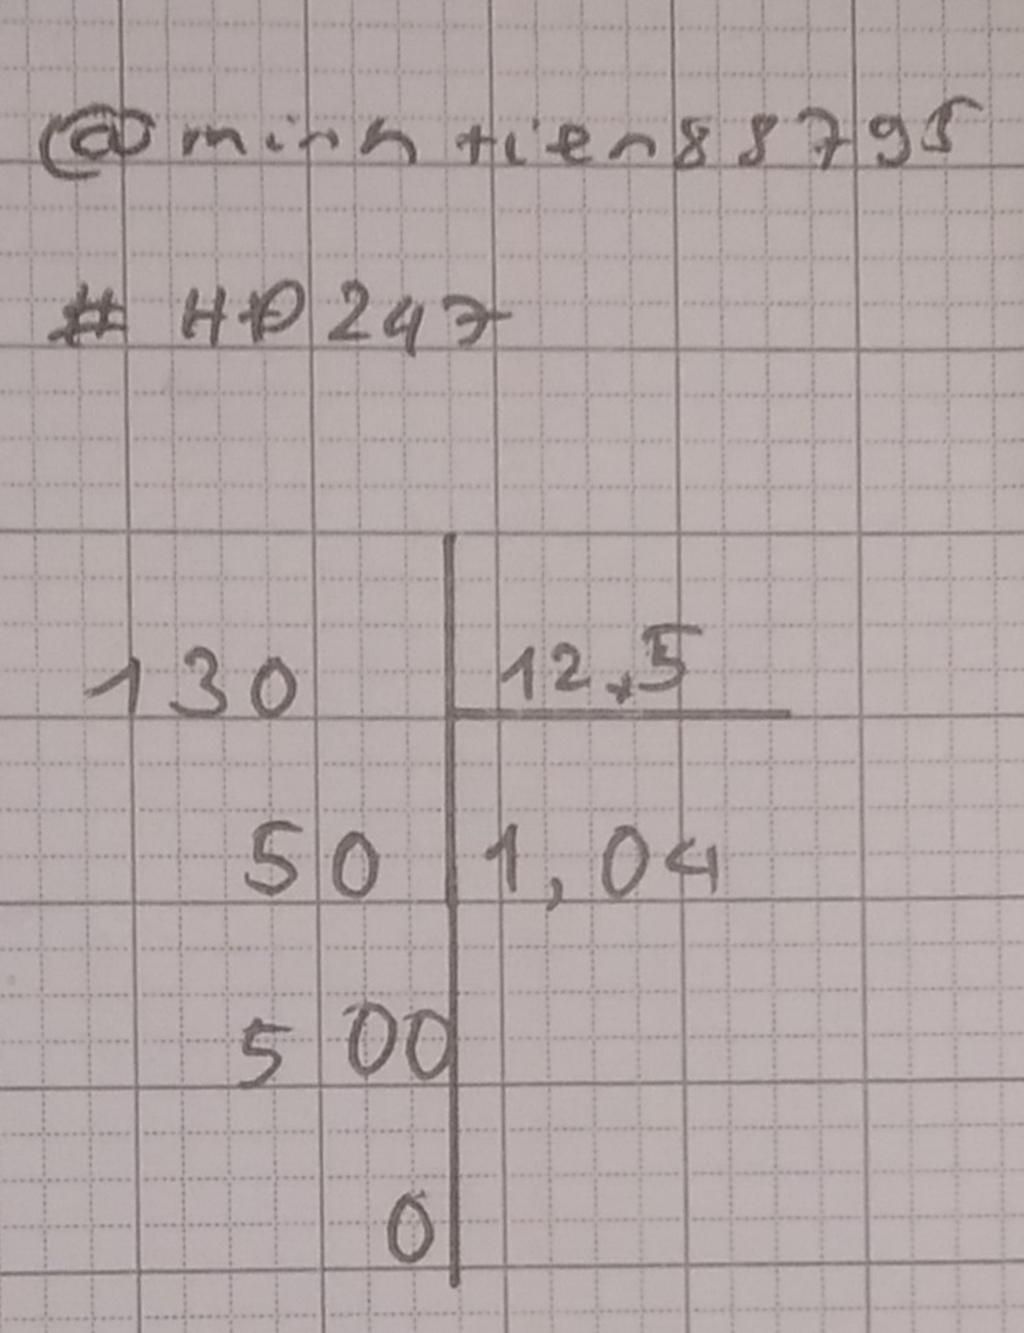 @minhtien88795
# HĐ247
130 12,5
50 1,04
500
0